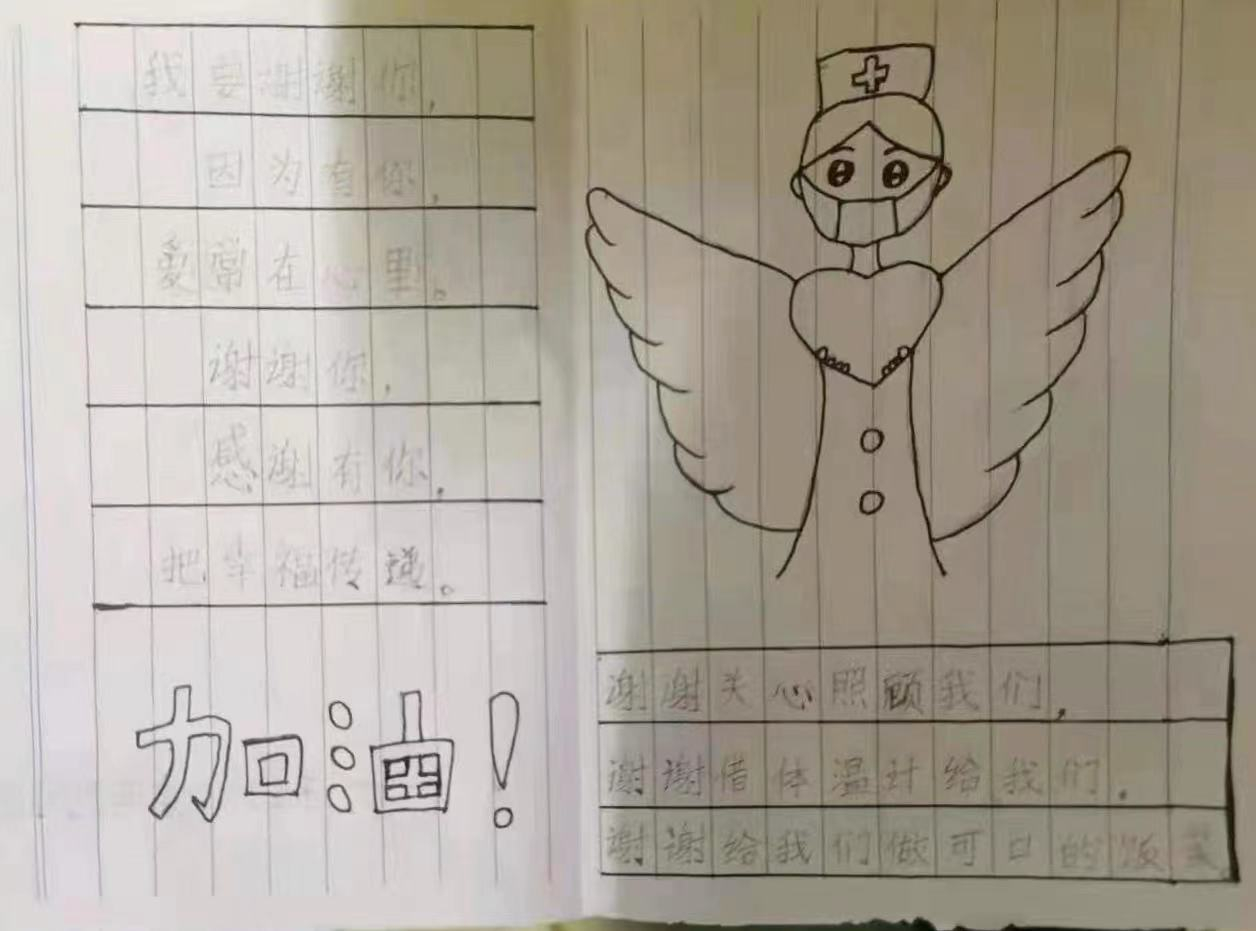 我要谢谢你,
因为有你,
爱常在心里。
谢谢你,
感谢有你,
把幸福传递。
加油!
谢谢关心照顾我们,
谢谢借体温计给我们.
谢谢给我们做可口的饭菜.